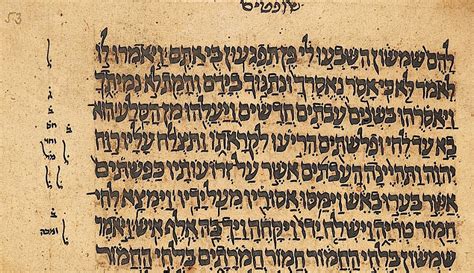 שופטים
53
להם שמשון השבעו לי פן תפגעון בי אתם ויאמרו לו
לאמר לא כי אסר נאסרך ונתנוך בידם והמת לא נמיתך
ויאסרהו בשנים עבתים חדשים ויעלהו מן הסלע הוא
בא עד לחי ופלשתים הריעו לקראתו ותצלח עליו רוח
יהוה ותהיינה העבתים אשר על זרועותיו כפשתים
אשר בערו באש וימסו אסוריו מעל ידיו וימצא לחי
חמור טריה וישלח ידו ויקחה ויך בה אלף איש ויאמר
שמשון בלחי החמור חמור חמרתים בלחי החמור